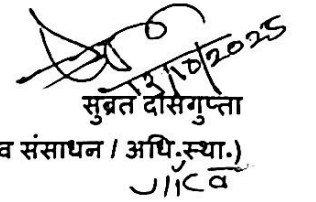 13/10/2025
सुब्रत दासगुप्ता
व संसाधन / अधि.स्था.)